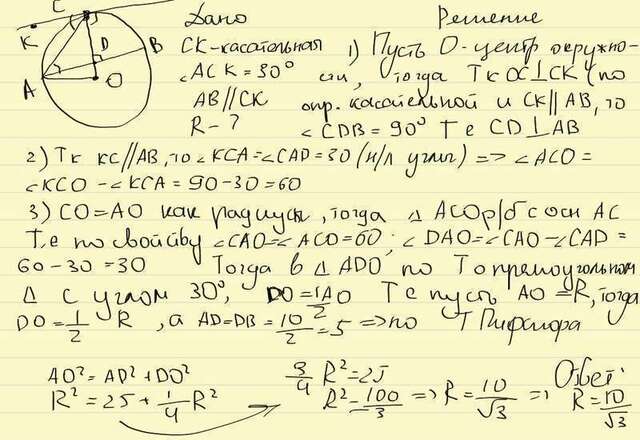 С
К
D
В
А
О
Дано
СК-касательная
∠ACK=30°
AB//CK
R-?
Решение
1) Пусть О-центр окружно-
сти, тогда Тк ОС⊥СК (по
опр. касательной и СК//АВ, то
∠CDB=90° Те CD⊥AB
2) Тк КС//АВ, то ∠KCA=∠CAD=30 (н/л углы) => ∠ACO=
∠KCO-∠KCA=90-30=60
3) СО=АО как радиусы, тогда △ACO р/б с осн АС
Т.е по свойству ∠CAO=∠ACO=60; ∠DAO=∠CAO-∠CAD=
60-30=30 Тогда в △ADO по Т о прямоугольном
△ с углом 30°, DO=1/2AO Те пусть AO=R, тогда
DO=1/2 R, а AD=DB=10/2=5 =>по Т Пифагора
AO²=AD²+DO²
R²=25+1/4R²
3/4R²=25
R²=100/3 => R=10/√3 =>
Ответ:
R=10/√3